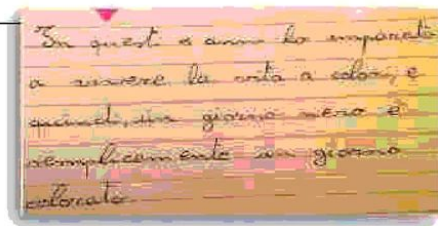 In quest. è anno ho imparato
a vivere la vita a colori, e
quindi, un giorno nero è
semplicemente un giorno
colorato.